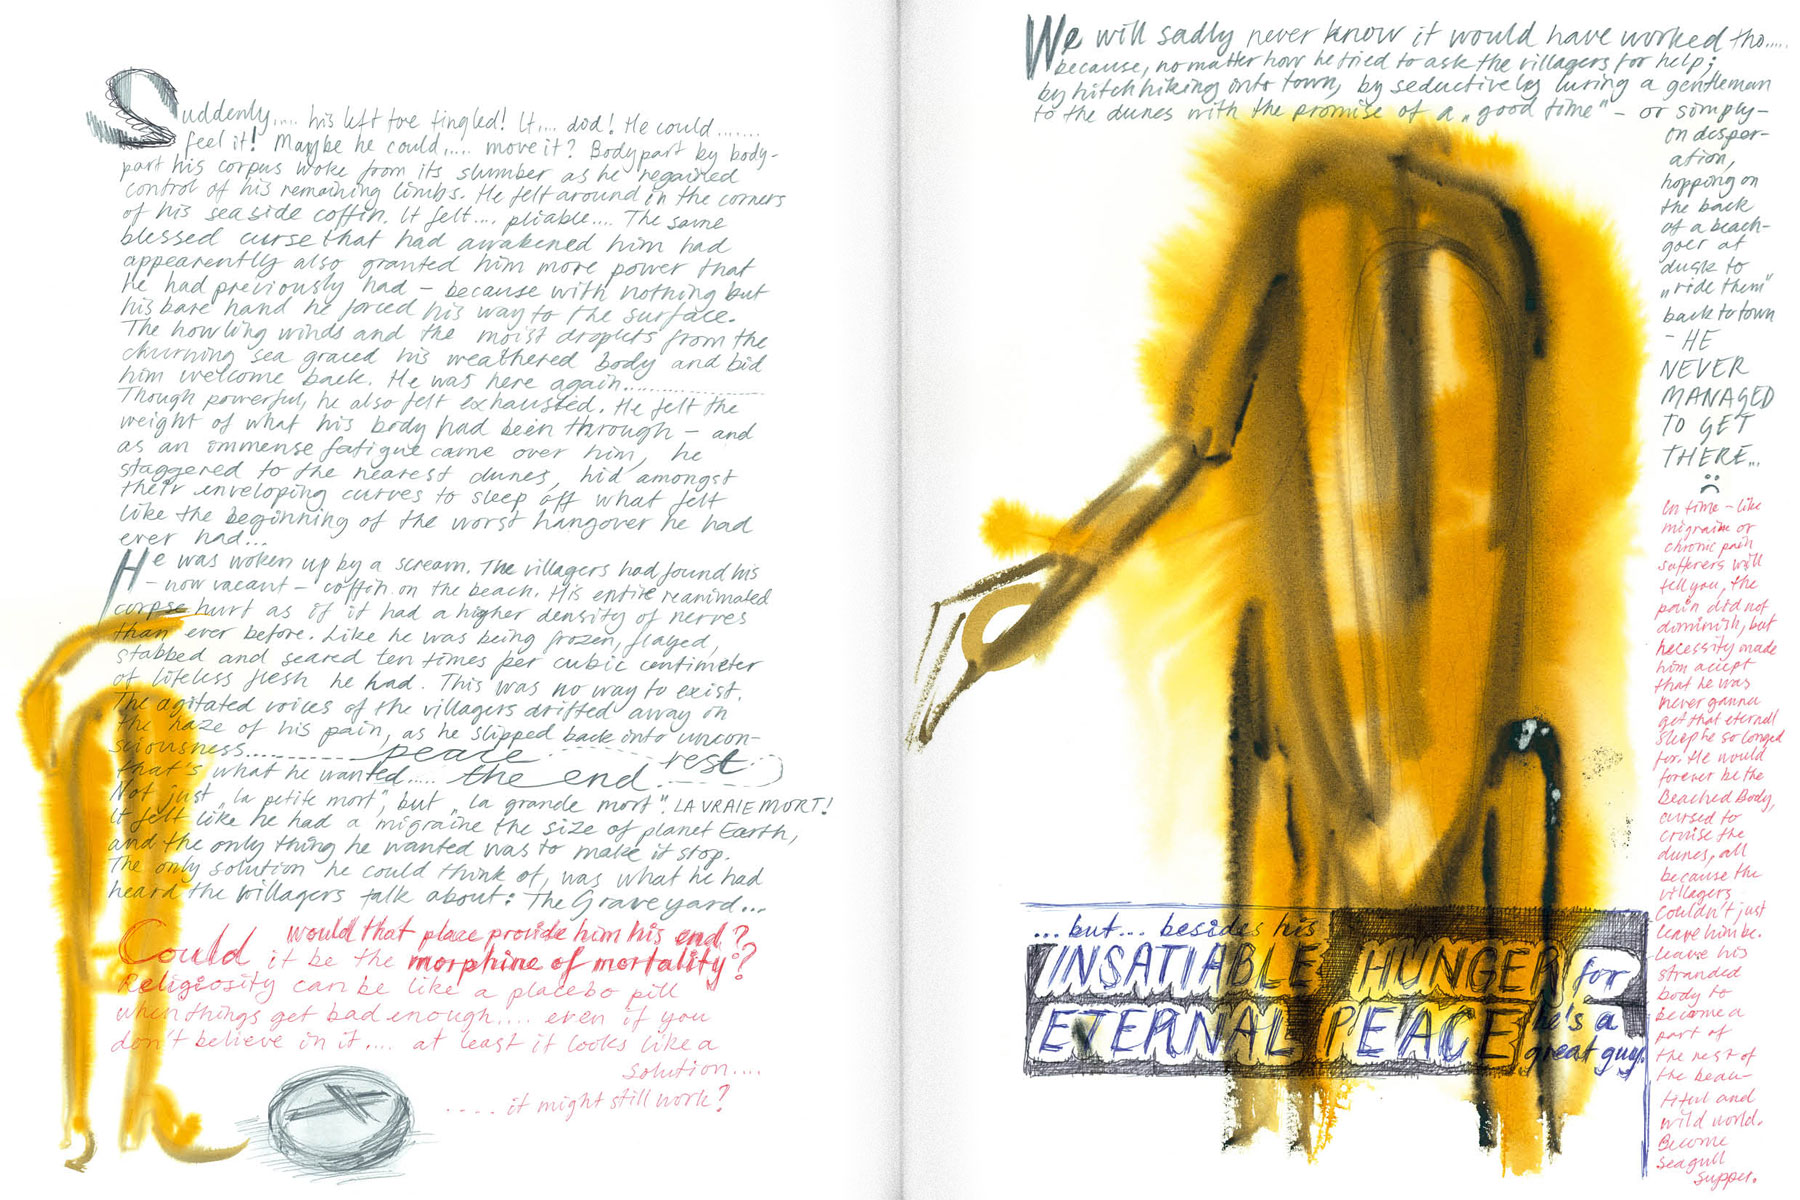 Suddenly.... his left toe tingled! It.... did! He could.......
feel it! Maybe he could..... move it? Bodypart by body-
part his corpus woke from its slumber as he regained
control of his remaining limbs. He felt around in the corners
of his seaside coffin. It felt.... pliable.... The same
blessed curse that had awakened him had
appearently also granted him more power that
he had previously had – because with nothing but
his bare hand he forced his way to the surface.
The howling winds and the moist droplets from the
churning sea graced his weathered body and bid
him welcome back. He was here again..................
Though powerful, he also felt exhausted. He felt the
weight of what his body had been through – and
as an immense fatigue came over him, he
staggered to the nearest dunes, hid amongst
their enveloping curves to sleep off what felt
like the beginning of the worst hangover he had
ever had...
He was woken up by a scream. The villagers had found his
– now vacant – coffin on the beach. His entire reanimated
corpse hurt as if it had a higher density of nerves
than ever before. Like he was being frozen, flayed,
stabbed and seared ten times per cubic centimeter
of lifeless flesh he had. This was no way to exist.
The agitated voices of the villagers drifted away on
the haze of his pain, as he slipped back into uncon-
sciousness........ peace rest
that's what he wanted..... the end
Not just „la petite mort", but „la grande mort". LA VRAIE MORT!
It felt like he had a migraine the size of planet Earth,
and the only thing he wanted was to make it stop.
The only solution he could think of, was what he had
heard the villagers talk about: The Graveyard...
would that place provide him his end?
Could it be the morphine of mortality?
Religiosity can be like a placebo pill
when things get bad enough.... even if you
don't believe in it.... at least it looks like a
solution....
.... it might still work?
We will sadly never know it would have worked tho.....
because, no matter how he tried to ask the villagers for help;
by hitchhiking into town, by seductively luring a gentleman
to the dunes with the promise of a „good time" – or simply –
in desper-
ation,
hopping on
the back
of a beach-
goer at
dusk to
„ride them"
back to town
– HE
NEVER
MANAGED
TO GET
THERE...
:(
In time – like
migraine or
chronic pain
sufferers will
tell you, the
pain did not
diminish, but
necessity made
him accept
that he was
never gonna
get that eternal
sleep he so longed
for. He would
forever be the
Beached Body,
cursed to
cruise the
dunes, all
because the
villagers
couldn't just
leave him be.
Leave his
stranded
body to
become a
part of
the rest of
the beau-
tiful and
wild world.
Become
seagull
supper.
...but... besides his
INSATIABLE HUNGER for
ETERNAL PEACE he's a
great guy.